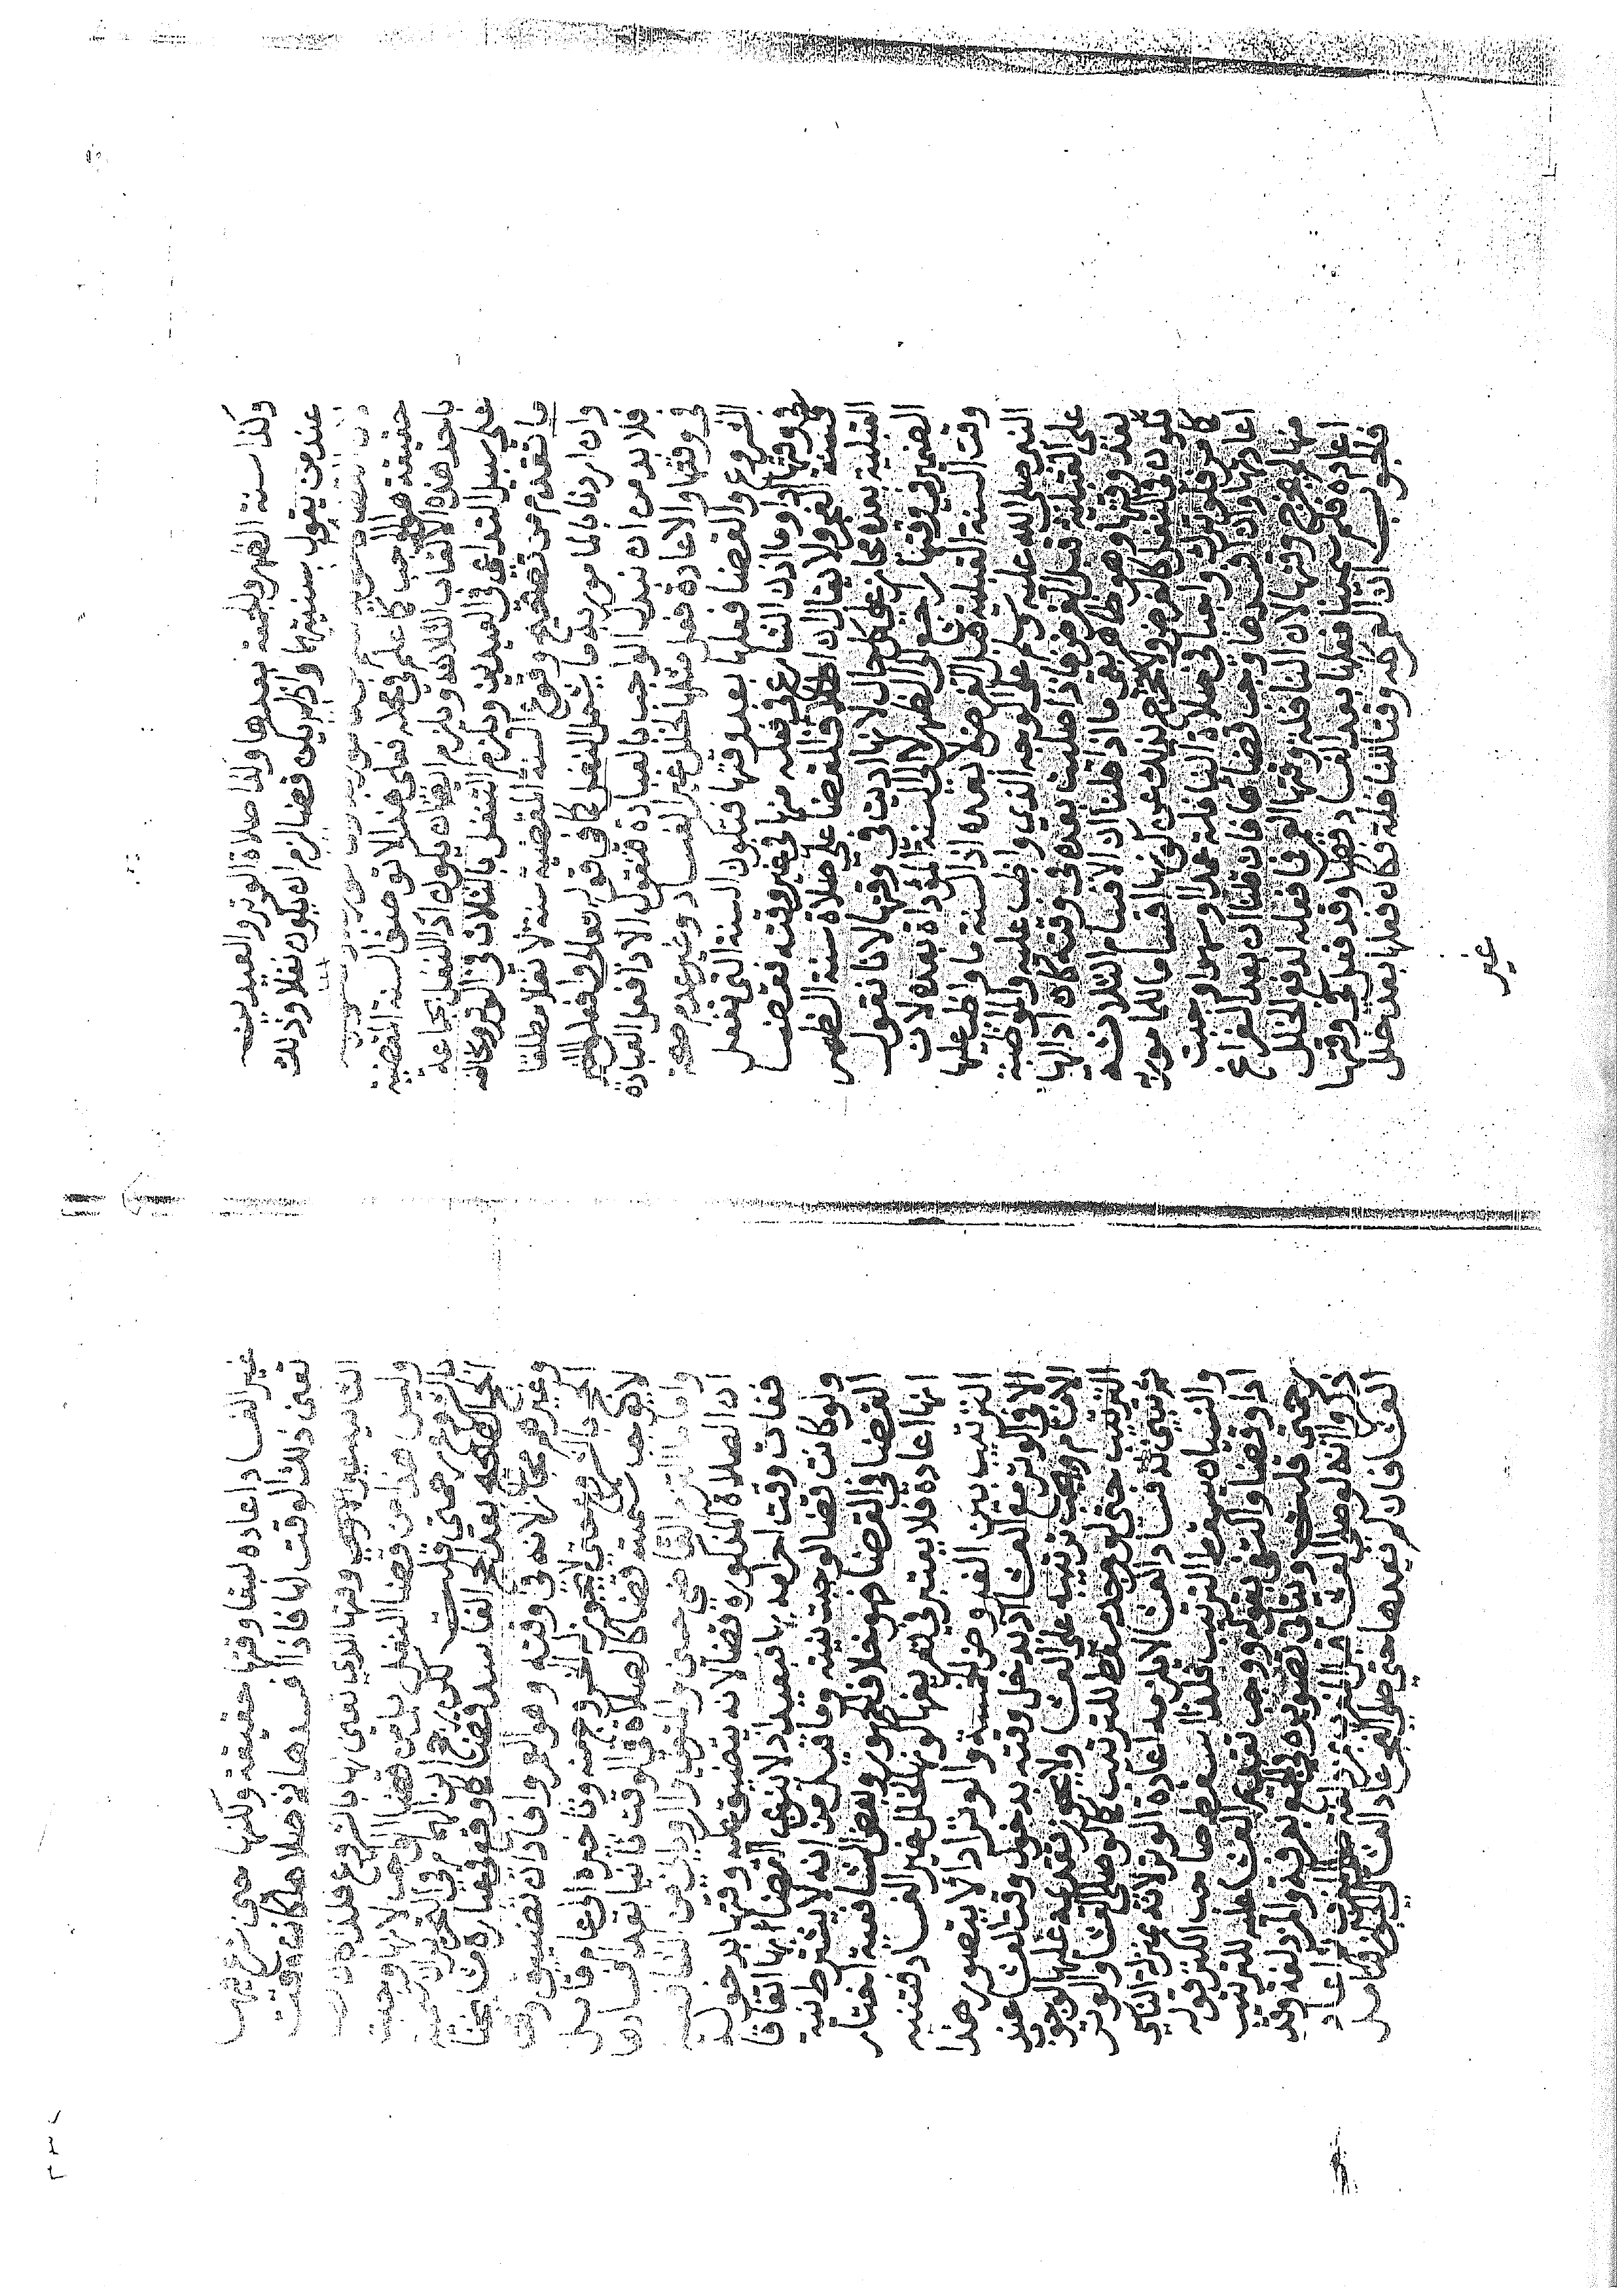 وكذا سنة الظهر والجمعة بعدها وكذا صلاة الوتر والعيدين
عند من يقول بسنيتها واذا لم يكن قضا لزم ان يكون نفلا وذلك
حقيقة هو الواجب كما علم وعلى هذا لا توصف السنة المقضية
باحد هذه الالقاب الثلاثة ويلزم ايضا ان يكون اذا النفل بجماعة
على سبيل التداعي في العيدين ويلزم التنفل بالثلاث في الوتر وكله
ما تقدم من تصحيح وقوع السنة المقضية سنة لا نفلا مطلقا
وان اردنا بالمامور به ما يشمل النفل كما في قوله تعالى وافعلوا الخير
فلا بد من ان نبدل الواجب بالعبادة فنقول الادا فعل العبادة
في وقتها والاعادة فعل مثلها لخلل غير الفساد وغير عدم صحة
الشروع والقضا فعلها بعد وقتها فتكون السنة التي تفعل
في وقتها ادا وما اذن الشارع في فعله منها في غير وقته فقضا
كسنة الفجر ولا يقال ان اطلاق القضا على صلاة سنة الظهر
القبلية بعده مجاز على كل حال لانها اديت في وقتها لانا نقول
الضمير في وقتها راجع الى الظهر لا الى السنة المؤداة بعده لان
وقت السنة القبلية قبل الفرض لا بعده اذ السنة ما واظب عليها
النبي صلى الله عليه وسلم على الوجه الذي واظب عليه والمواظبة
على القبلية قبل الفرض فاذا صليت بعده في وقته كان ادا لها
بعد وقتها وهو ظاهر بقي ما اذا قلنا ان الاقسام الثلاثة
تكون في النفل كالفرض ولا تخرج بذلك عن كونها اقساما للمامور به
كما مر فلو ترك واجبا في صلاة النافلة عمدا او سهوا وجبت
اعادتها وان افسدها وجب قضاؤها فان قلنا ان بعد الفراغ
منها يخرج وقتها لان النافلة وقتها العمر فما فعله لدفع الخلل
اعادة فلم سمينا فعلها بعد الفساد قضا وقد فعل في وقتها
فالجواب ان العمر كله وقت للنافلة فكان فعلها بعد خلل
غير
غير الفساد اعادة لبقا وقتها حقيقة ولكنها متى شرع فيها
تعين ذلك الوقت لها فاذا افسدها ثم صلاها كانه وقت
وليس هذا من قضا النفل بل من قضا الواجب لانها وجبت
بالشروع رحمتي قلت لكن رجح ابن الهمام في التحرير ان تسمية
الحج الصحيح بعد الحج الفاسد قضا كما وقع في عبارة مشايخنا
وغيرهم مجاز لانه في وقته وهو العمر واما ان تضييق وقت
الحج بالشروع حتى لا يجوز له الخروج منه وتاخيره الى عام قابل
لا يوجب تسميته قضا كالصلاة في الوقت ثانيا بعد افسادها
واما التزام القاضي حسين والمتولي والروياني من الشافعية
ان الصلاة المذكورة قضا لانه يتضيق عليه وقتها بدخوله
ففات وقت احرامه بها فبعيد اذ لا ينوي القضاء بها اتفاقا
ولو كانت قضا لوجبت نيته وما قيل من انه لا يشترط نية
القضا في القضا فهو خلاف الجمهور وبعض الشافعية اختار
انها اعادة فلا يعتبر في تعريفها كونها لخلل غير الفساد فتنبه
الترتيب بين الفروض الخمسة والوتر ادا لا يتصور هذا
الا في الوتر مع العشا اذ يدخل وقته بدخول وقت العشا عند
الامام ويجب ترتيبه على العشا ولا يجوز تقديمه عليها لوجوب
الترتيب حتى لو وجد مسقط للترتيب كما لو صلى العشا والوتر
ثم تبين له فساد العشا لا يلزمه اعادة الوتر لانه بمنزلة الناسي
والنسيان يسقط الترتيب فلهذا اسقط صاحب الكنز قوله
ادا وقضا واكتفى بقوله ووجب تقديم العشا عليه للترتيب
رحمتي قلت ويتاتى تصويره في الجمع بعرفة والمزدلفة وقد
ذكروا انه لو صلى العشا قبل المغرب بمزدلفة صلى المغرب ثم اعاد
العشا فان لم يعدها حتى طلع الفجر عاد العشا الى الجواز فتامل